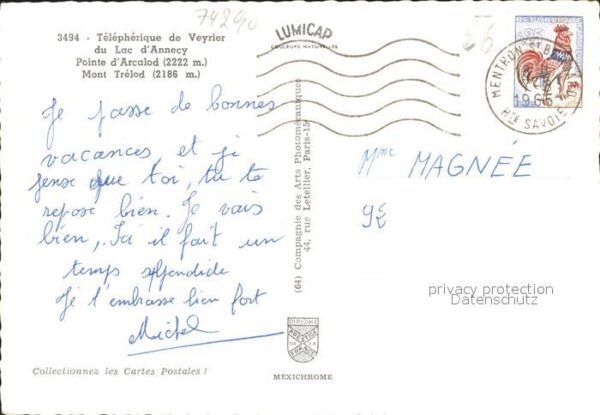 74290
3494 - Téléphérique de Veyrier
du Lac d'Annecy
Pointe d'Arcalod (2222 m.)
Mont Trélod (2186 m.)
LUMICAP
COULEURS NATURELLES
MENTHON ST B
1965
HTE SAVOIE
Je passe de bonnes
vacances et je
pense que toi, tu te
repose bien. Je vais
bien, Ici il fait un
temps splendide
Je t'embrasse bien fort
Michel
(64) Compagnie des Arts Photomécaniques
44, rue Letellier, Paris-15e
Mme MAGNÉE
privacy protection
Datenschutz
DIPLOME
PRESTIGE
DE LA
FRANCE
Collectionnez les Cartes Postales !
MEXICHROME